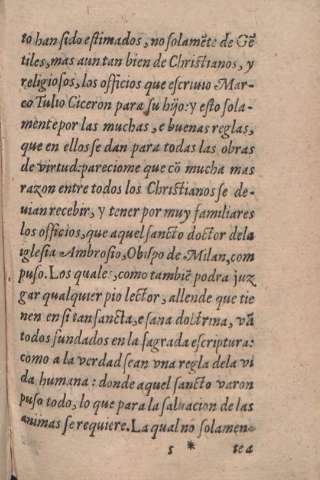 to han sido estimados, no solamẽte de Gẽ
tiles, mas aun tan bien de Christianos, y
religiosos, los officios que escriuio Mar-
co Tulio Ciceron para su hijo: y esto sola-
mente por las muchas, e buenas reglas,
que en ellos se dan para todas las obras
de virtud: pareciome que cõ mucha mas
razon entre todos los Christianos se de-
uian recebir, y tener por muy familiares
los officios, que aquel sancto doctor dela
iglesia Ambrosio, Obispo de Milan, com
puso. Los quales, como tambiẽ podra juz
gar qualquier pio lector, allende que tie
nen en si tan sancta, e sana doctrina, vã
todos fundados en la sagrada escriptura:
como a la verdad sean vna regla dela vi
da humana: donde aquel sancto varon
puso todo, lo que para la saluacion de las
animas se requiere. La qual no solamen-
s * te a